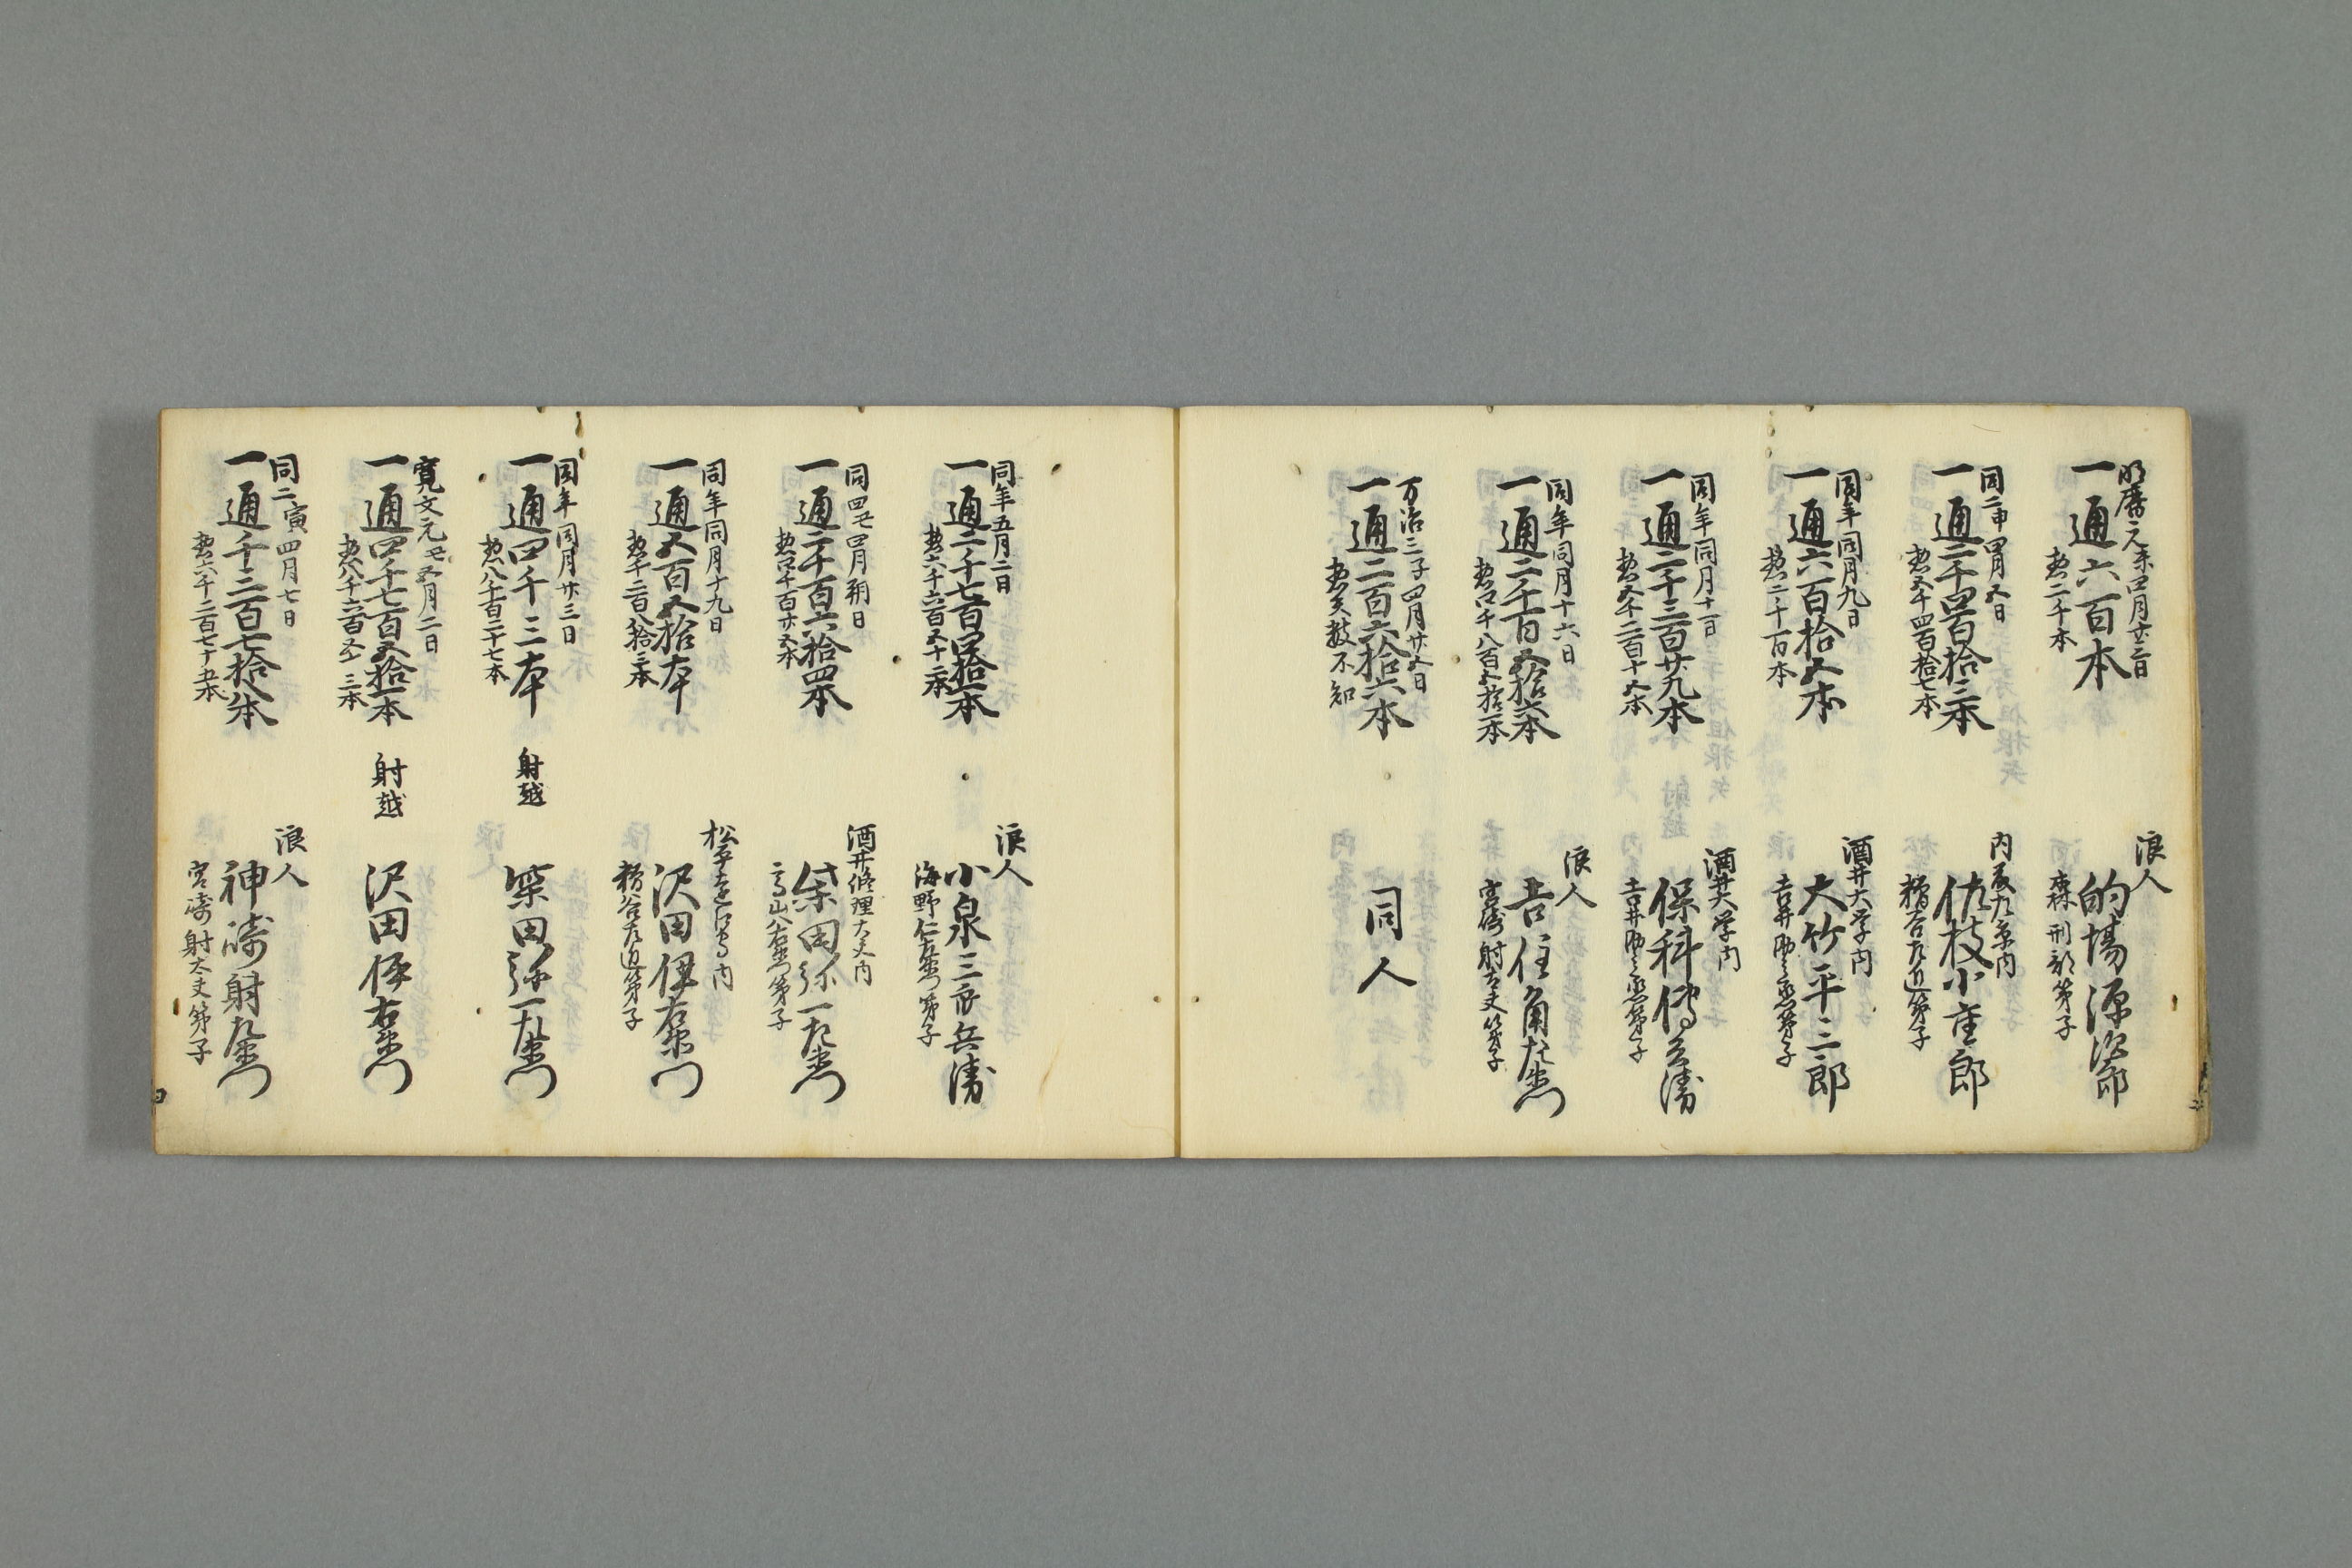 明暦元未四月廿二日
一通六百本
惣二千本
浪人
的場源次郎
森刑部弟子
同二申四月五日
一通二千四百拾三本
惣五千四百拾七本
内藤左京内
佐枝小重郎
糟谷左近弟子
同年同月九日
一通六百拾五本
惣二千百本
酒井大学内
大竹平三郎
吉井助之丞弟子
同年同月十一日
一通二千三百廿九本
惣五千二百十五本
酒井大学内
保科傳兵衛
吉井助之丞弟子
同年同月十六日
一通二千百五拾六本
惣四千八百五拾二本
浪人
吉住角左衛門
宮崎射太夫弟子
万治三子四月廿五日
一通二百六拾六本
惣矢数不知
同人
同年五月二日
一通二千七百四拾一本
惣六千六百五十二本
浪人
小泉三郎兵衛
海野仁左衛門弟子
同四丑四月朔日
一通二千百六拾四本
惣四千百廿五本
酒井修理大夫内
柴田弥一左衛門
高山八右衛門弟子
同年同月十九日
一通五百五拾本
惣千二百八拾三本
松平遠江守内
沢田伊右衛門
糟谷左近弟子
同年同月廿三日
一通四千三本
惣八千百二十七本
射越
柴田弥一左衛門
寛文元丑五月二日
一通四千七百五拾一本
惣八千六百五十三本
射越
沢田伊右衛門
同二寅四月七日
一通千二百七拾八本
惣六千二百七十五本
浪人
神崎射左衛門
宮崎射太夫弟子